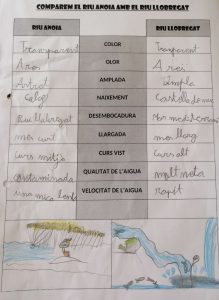 COMPAREM EL RIU ANOIA AMB EL RIU LLOBREGAT
RIU ANOIA RIU LLOBREGAT
Transparent COLOR Transparent
OLOR A res
AMPLADA Ampla
NAIXEMENT Castellar de
Riu Llobregat DESEMBOCADURA Mar mediterrani
més curt LLARGADA més llarg
Curs mitjà CURS VIST Curs alt
contaminada QUALITAT DE L'AIGUA molt neta
una mica lenta VELOCITAT DE L'AIGUA ràpit